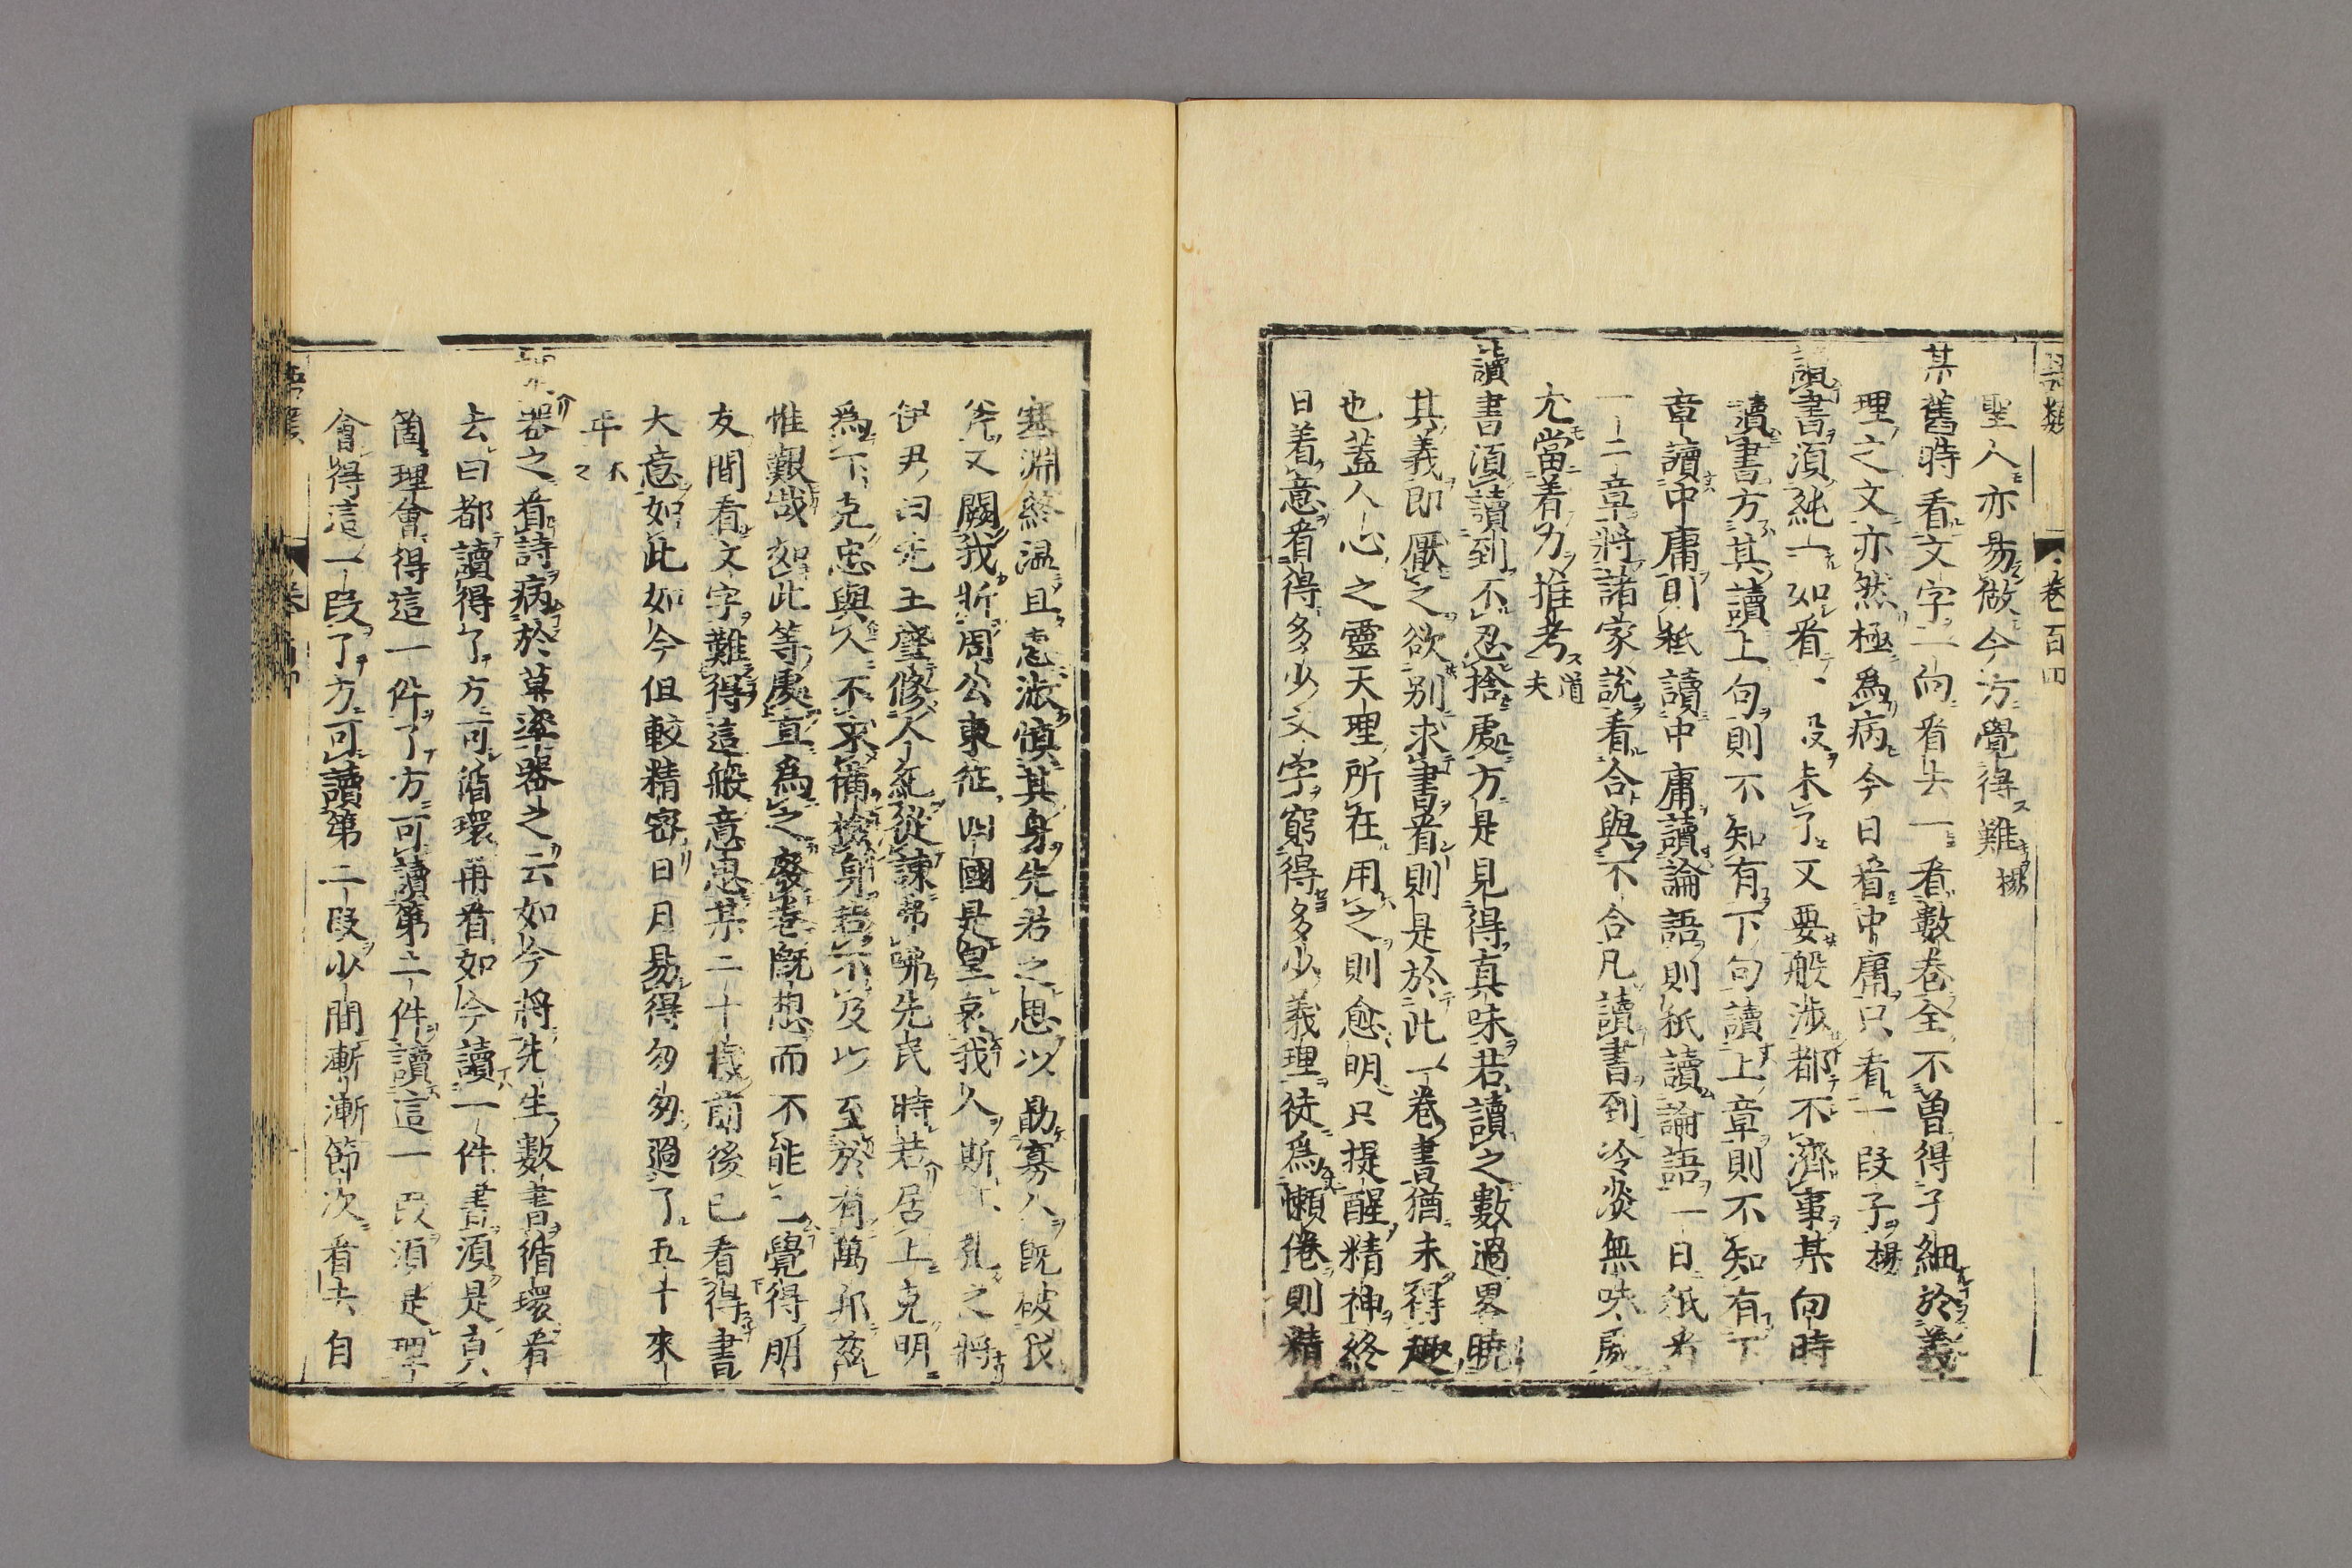 語類 卷一百四
聖人亦易做今方覺得難 揚
某舊時看文字一向看去一看數卷全不曾得子細於義
理之文亦然極爲病今日看中庸只看一段子 揚
讀書須純一如看一般未了又要般涉都不濟事某向時
讀書方其讀上句則不知有下句讀上章則不知有下
章讀中庸則秖讀中庸讀論語則秖讀論語一日秖看
一二章將諸家說看合與不合凡讀書到冷淡無味處
尤當着力推考 道夫
讀書須讀到不忍捨處方是見得真味若讀之數過畧曉
其義即厭之欲別求書看則是於此一卷書猶未得趣
也蓋人心之靈天理所在用之則愈明只提醒精神終
日着意看得多少文字窮得多少義理徒爲懶倦則精
塞淵終温且惠淑慎其身先君之思以勗寡人既破我
斧又闕我斨周公東征四國是皇哀我人斯 孔之將
伊尹曰先王肇修人紀從諫弗咈先民時若居上克明
爲下克忠與人不求備檢身若不及以至於有萬邦兹
惟艱哉如此等處直爲之廢卷慨想而不能已覺得朋
友間看文字難得這般意思某二十歲前後已看得書
大意如此如今但較精密日月易得匆匆過了五十來
年 不
器之看詩病於草率器之云如今將先生數書循環看
去曰都讀得了方可循環再看如今讀一件書須是真
箇理會得這一件了方可讀第二件讀這一段須是理
會得這一段了方可讀第二段少間漸漸節次看去自